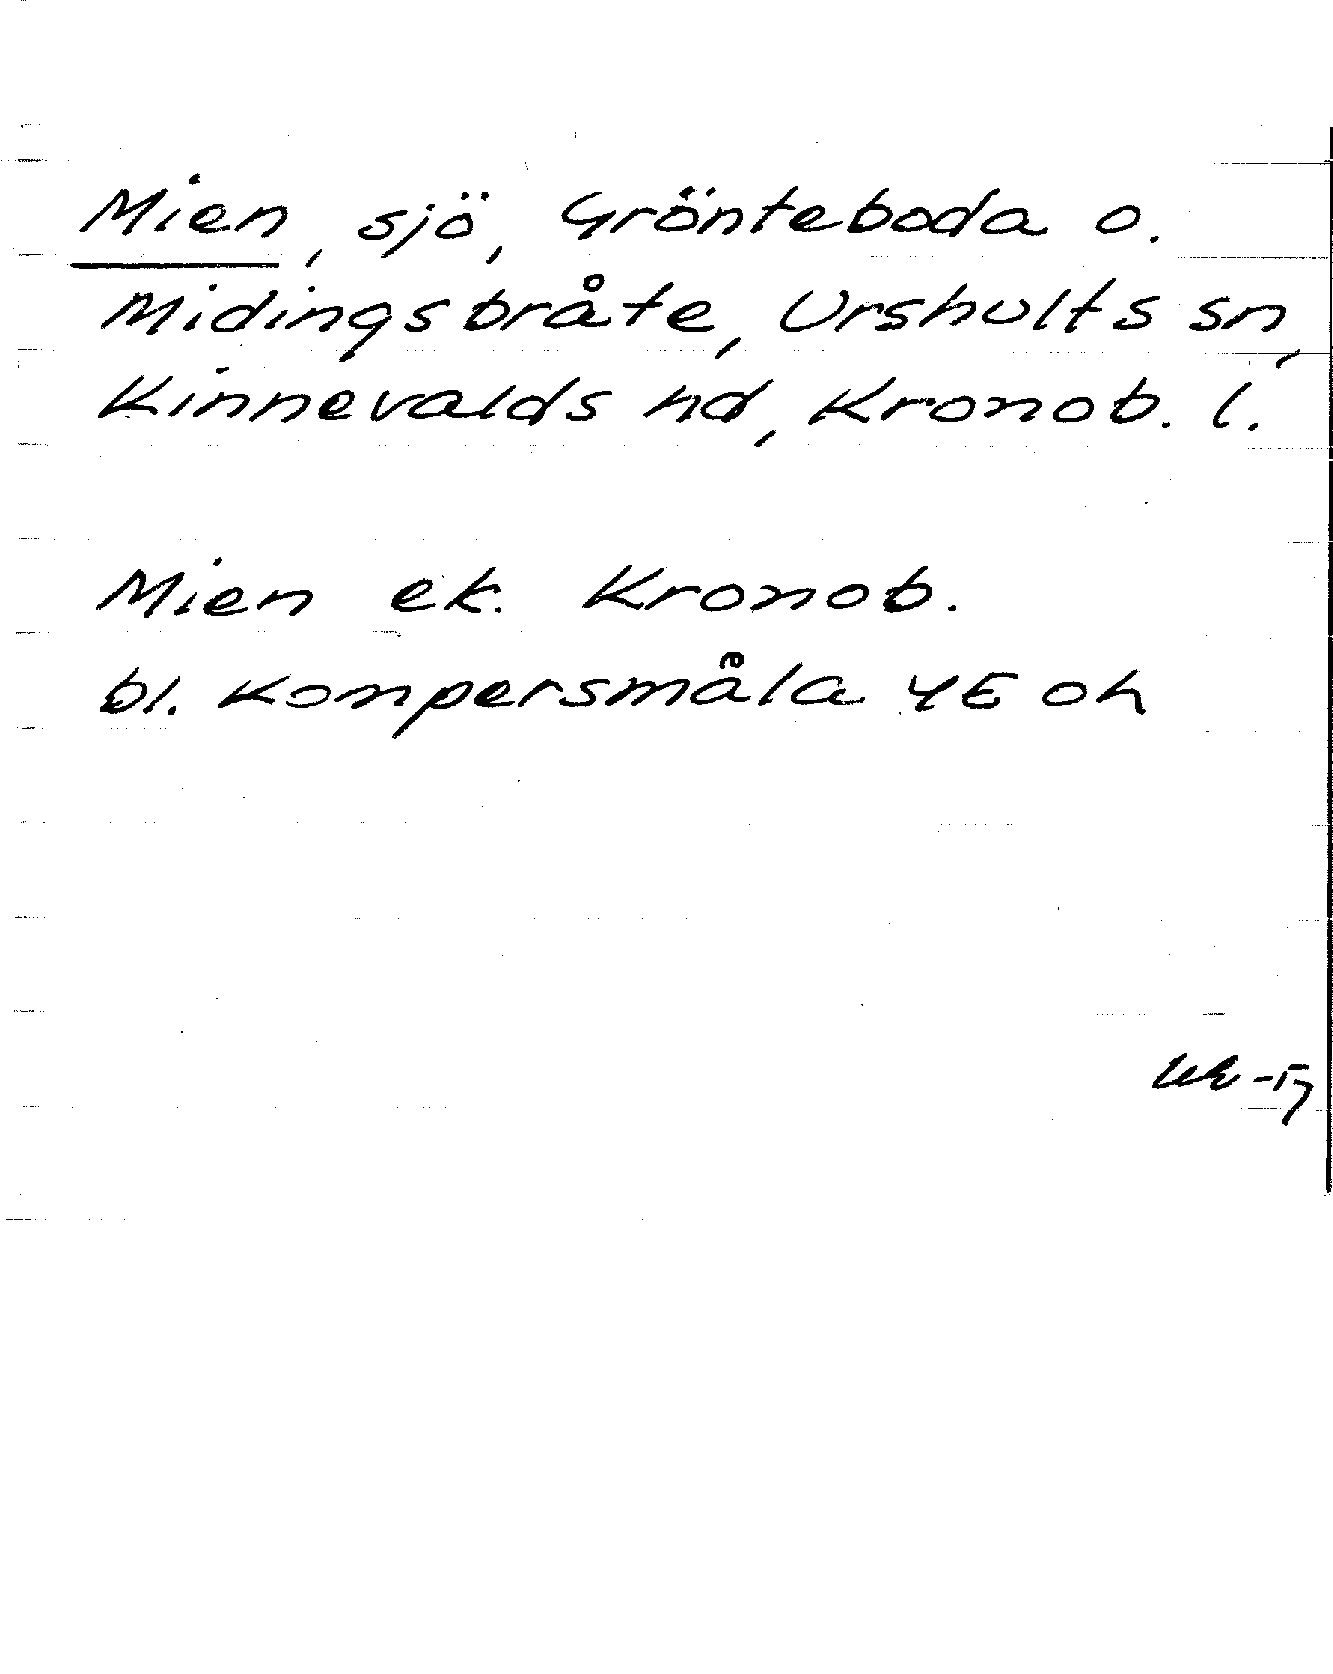 Mien, sjö, Grönteboda o.
Midingsbråte, Urshults sn,
Kinnevalds hd, Kronob. l.
Mien ek. Kronob.
bl. Kompersmåla 4E oh